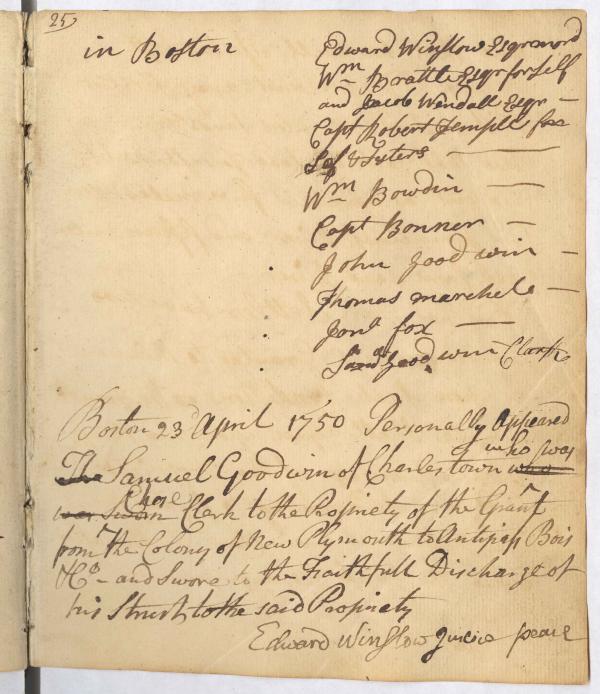 25
in Boston
Edward Winslow Esqr mord
Wm Brattle Esqr for Self
and Jacob Wendall Esqr —
Capt Robert Temple for
Self & Sisters —
Wm Bowdin —
Capt Bonner —
John Goodwin —
Thomas marchel —
Jona fox —
Saml Goodwin Clark
Boston 23d April 1750 Personally Appeared
The Samuel Goodwin of Charlestown who who was
was Sworn Chose Clerk to the Propriety of the Grant
from the Colony of New Plymouth to Antipas Bois
&Co and Swore to the Faithfull Discharge of
his Trust to the said Propriety
Edward Winslow Justice peace